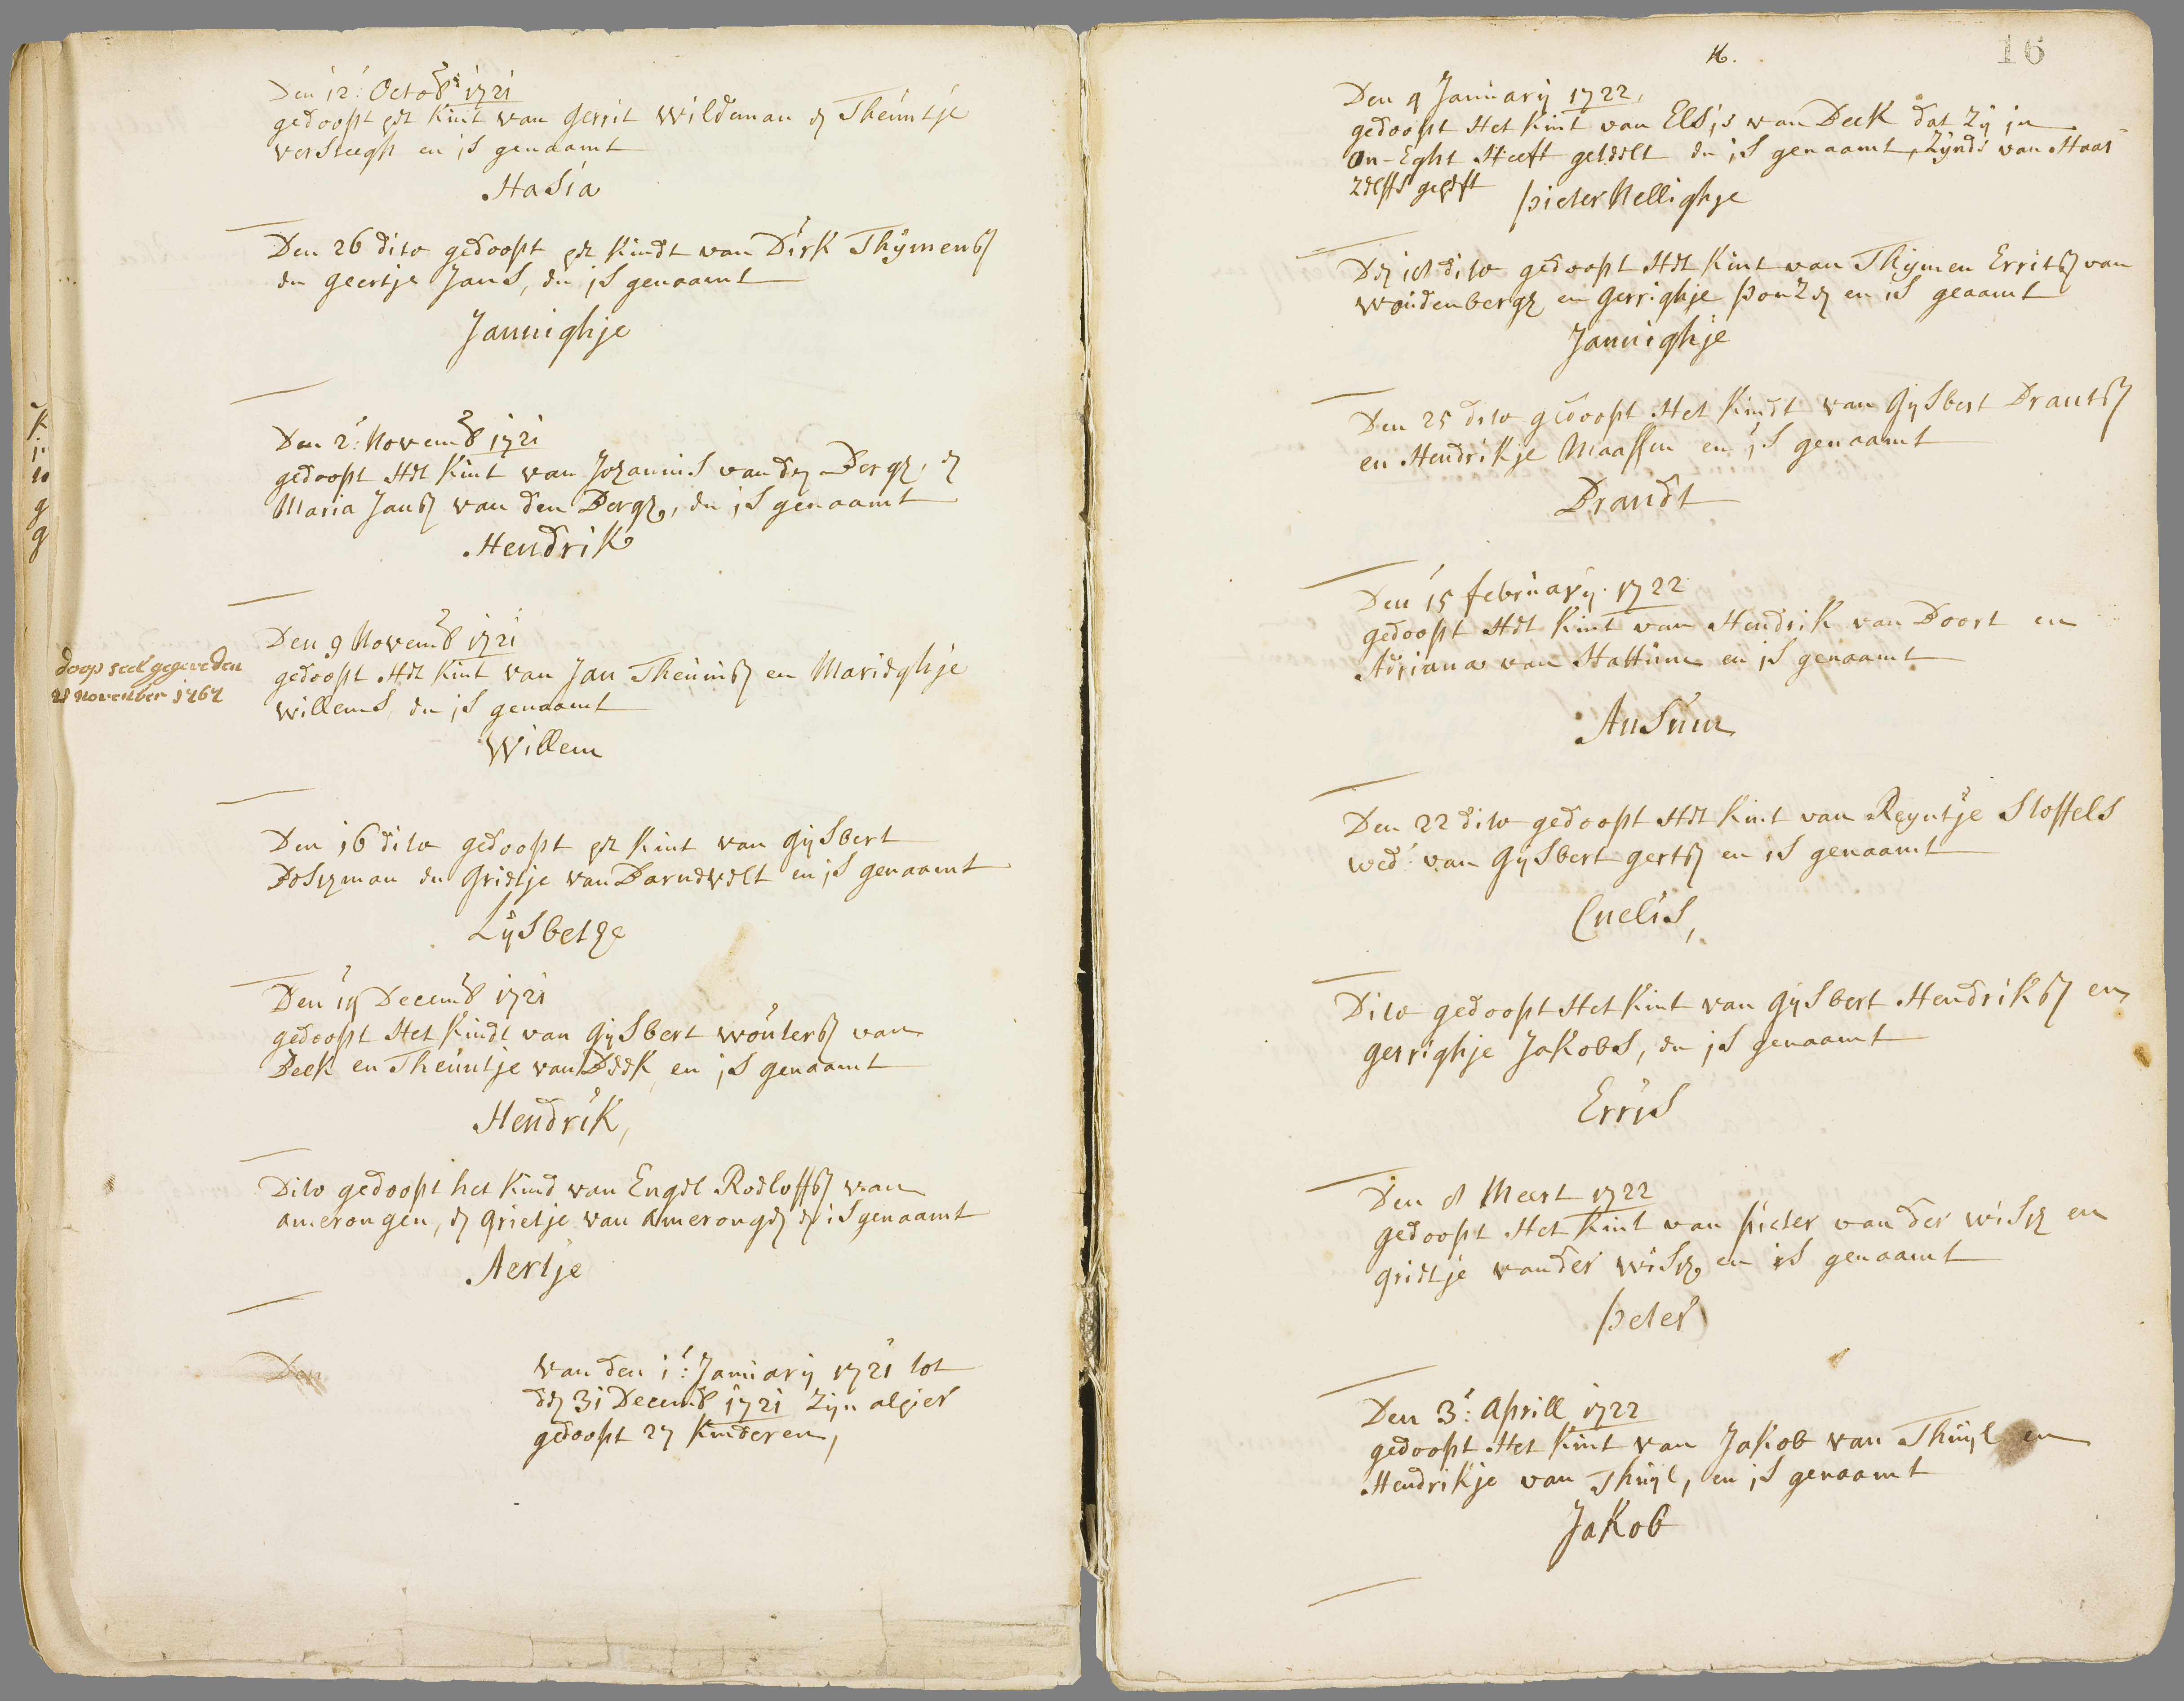 Den 12: Octob: 1721
gedoopt het Kint van Gerrit Wildeman en Theuntje
Versteegh en is genaamt
Hasia
Den 26 dito gedoopt het Kindt van Dirk Thijmensz
en Geertje Jans, en is genaamt
Jannighje
Den 2: Novemb 1721
gedoopt Het Kint van Johannis van den Bergh, en
Maria Jansz van den Bergh, en is genaamt
Hendrik
Den 9 Novemb 1721
gedoopt Het Kint van Jan Theunisz en Marieghje
Willems en is genaamt
Willem
doop seel gegeve den
November
Den 16 dito gedoopt het Kint van Gijsbert
Boshman en Grietje van Barnevelt en is genaamt
Lijsbethe
Den 19 Decemb 1721
gedoopt Het Kindt van Gijsbert Woutersz van
Beek en Theuntje van Beek en is genaamt
Hendrik,
Dito gedoopt het Kind van Engel Roeloffsz van
Amerongen, en Grietje van Amerongen en is genaamt
Aertje
Den
Van den 1: Januarij 1721 tot
den 31 Decemb 1721 Zijn alhier
gedoopt 27 Kinderen,
16.
16
Den 9 Januarij 1722,
gedoopt Het Kint van Elsis van Beek dat Zij in
On-Eght Heeft geteelt en is genaamt, Zijnde van Haar
Zelffs geheft
Pieter Nellighje
Den 18 dito gedoopt Het Kint van Thijmen Erritsz van
Woudenbergh en Gerrighje en is geaamt
Jannighje
Den 25 dito gedoopt Het Kindt van Gijsbert Brantsz
en Hendrikje Maassen en is genaamt
Brandt
Den 15 februarij 1722
gedoopt Het Kint van Hendrik van Doort en
Adriana van Hattum en is genaamt
Ansum
Den 22 dito gedoopt Het Kint van Reijntje Stoffels
wed: van Gijsbert Gertsz en is genaamt
Cnelis,
Dito gedoopt Het Kint van Gijsbert Hendriksz en
Gerrighje Jakobs, en is genaamt
Erris
Den 8 Meert 1722
gedoopt Het Kint van Pieter van der Wish en
Grietje van der Wish en is genaamt
Peter
Den 3: Aprill 1722
gedoopt Het Kint van Jakob van Thuijl en
Hendrikje van Thuijl, en is genaamt
Jakob